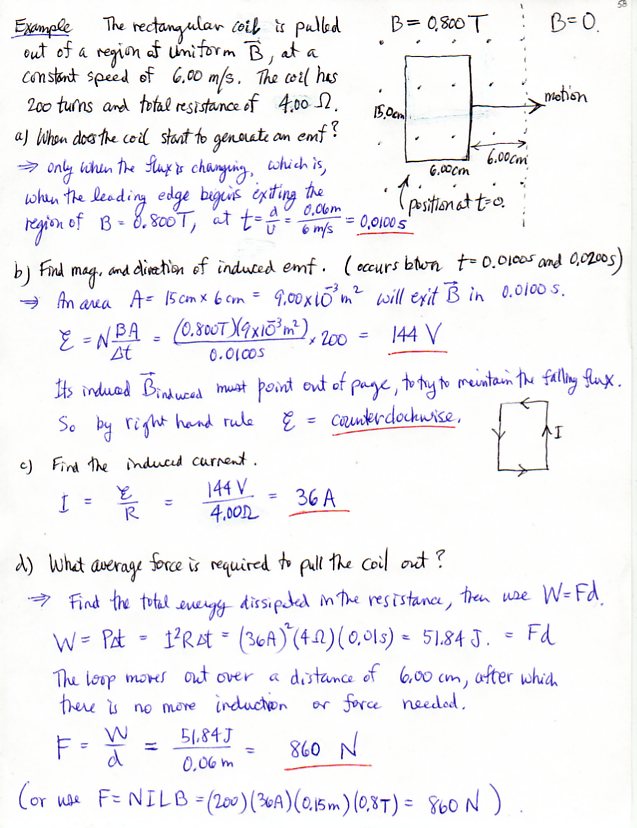 58
Example The rectangular coil is pulled
out of a region of uniform B⃗, at a
constant speed of 6.00 m/s. The coil has
200 turns and total resistance of 4.00 Ω.
B = 0.800 T B = 0.
15.0cm
motion
6.00cm
6.00cm
position at t=0.
a) When does the coil start to generate an emf?
⇒ only when the flux is changing, which is,
when the leading edge begins exiting the
region of B = 0.800T, at t = d/v = 0.06m/6 m/s = 0.0100 s
b) Find mag. and direction of induced emf. (occurs btwn t = 0.0100s and 0.0200s)
⇒ An area A = 15 cm x 6 cm = 9.00x10⁻³ m² will exit B⃗ in 0.0100 s.
Ɛ = N BA/Δt = (0.800T)(9x10⁻³m²)/0.0100s x 200 = 144 V
Its induced B⃗induced must point out of page, to try to maintain the falling flux.
So by right hand rule Ɛ = counterclockwise.
I
c) Find the induced current.
I = Ɛ/R = 144 V/4.00Ω = 36 A
d) What average force is required to pull the coil out?
⇒ Find the total energy dissipated in the resistance, then use W=Fd.
W = PΔt = I²RΔt = (36A)²(4Ω)(0.01s) = 51.84 J. = Fd
The loop moves out over a distance of 6.00 cm, after which
there is no more induction or force needed.
F = W/d = 51.84J/0.06m = 860 N
(or use F = NILB = (200)(36A)(0.15m)(0.8T) = 860 N).